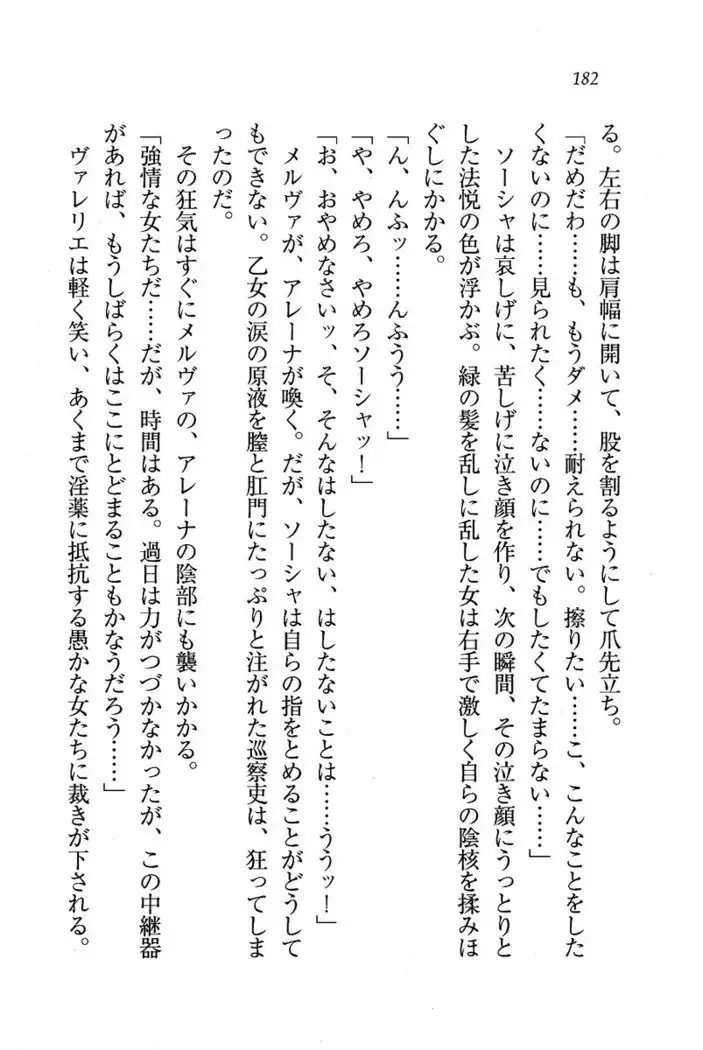 182
る。左右の脚は肩幅に開いて、股を割るようにして爪先立ち。
「だめだわ……も、もうダメ……耐えられない。擦りたい……こ、こんなことをした
くないのに……見られたく……ないのに……でもしたくてたまらない……」
ソーシャは哀しげに、苦しげに泣き顔を作り、次の瞬間、その泣き顔にうっとりと
した法悦の色が浮かぶ。緑の髪を乱しに乱した女は右手で激しく自らの陰核を揉みほ
ぐしにかかる。
「ん、んふッ……んふうう……」
「や、やめろ、やめろソーシャッ！」
「お、おやめなさいッ、そ、そんなはしたない、はしたないことは……ううッ！」
メルヴァが、アレーナが喚く。だが、ソーシャは自らの指をとめることがどうして
もできない。乙女の涙の原液を膣と肛門にたっぷりと注がれた巡察吏は、狂ってしま
ったのだ。
その狂気はすぐにメルヴァの、アレーナの陰部にも襲いかかる。
「強情な女たちだ……だが、時間はある。過日は力がつづかなかったが、この中継器
があれば、もうしばらくはここにとどまることもかなうだろう……」
ヴァレリエは軽く笑い、あくまで淫薬に抵抗する愚かな女たちに裁きが下される。